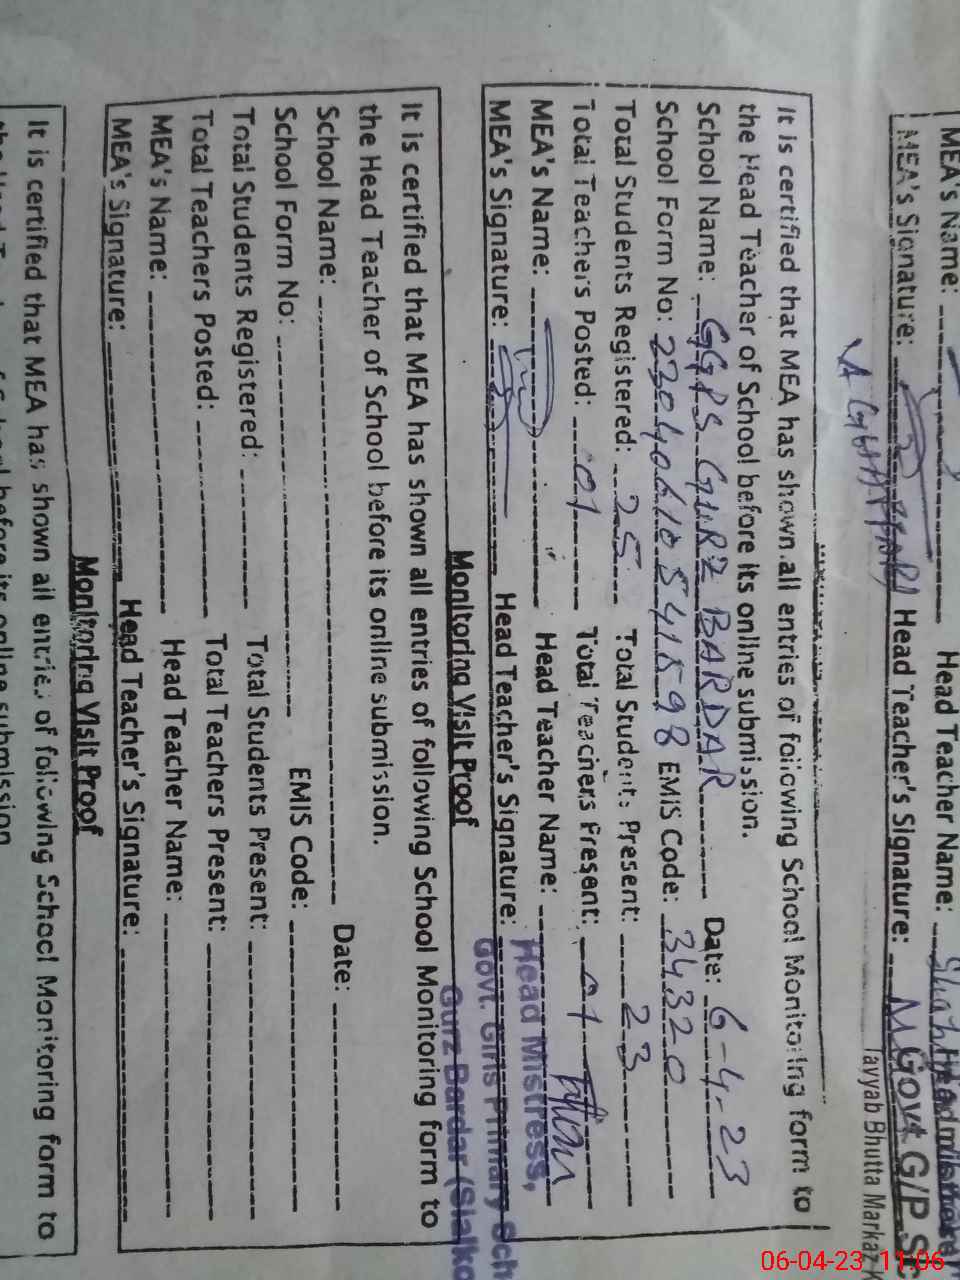 MEA's Name: Head Teacher Name:
MEA's Signature: Head Teacher's Signature:
Govt G/P
Tayyab Bhutta Markaz
It is certified that MEA has shown all entries of following School Monitoring form to
the Head Teacher of School before its online submission.
School Name: GGPS GURZ BARDAR Date: 6-4-23
School Form No: EMIS Code: 34320
Total Students Registered: 25 Total Students Present: 23
Total Teachers Posted: 01 Total Teachers Present: 01
MEA's Name: Head Teacher Name:
MEA's Signature: Head Teacher's Signature:
Head Mistress,
Govt. Girls Primary Sch
Gurz Bardar (Sialko
Monitoring Visit Proof
It is certified that MEA has shown all entries of following School Monitoring form to
the Head Teacher of School before its online submission.
School Name: Date:
School Form No: EMIS Code:
Total Students Registered: Total Students Present:
Total Teachers Posted: Total Teachers Present:
MEA's Name: Head Teacher Name:
MEA's Signature: Head Teacher's Signature:
Monitoring Visit Proof
It is certified that MEA has shown all entries of following School Monitoring form to
before its online submission
06-04-23 11:06